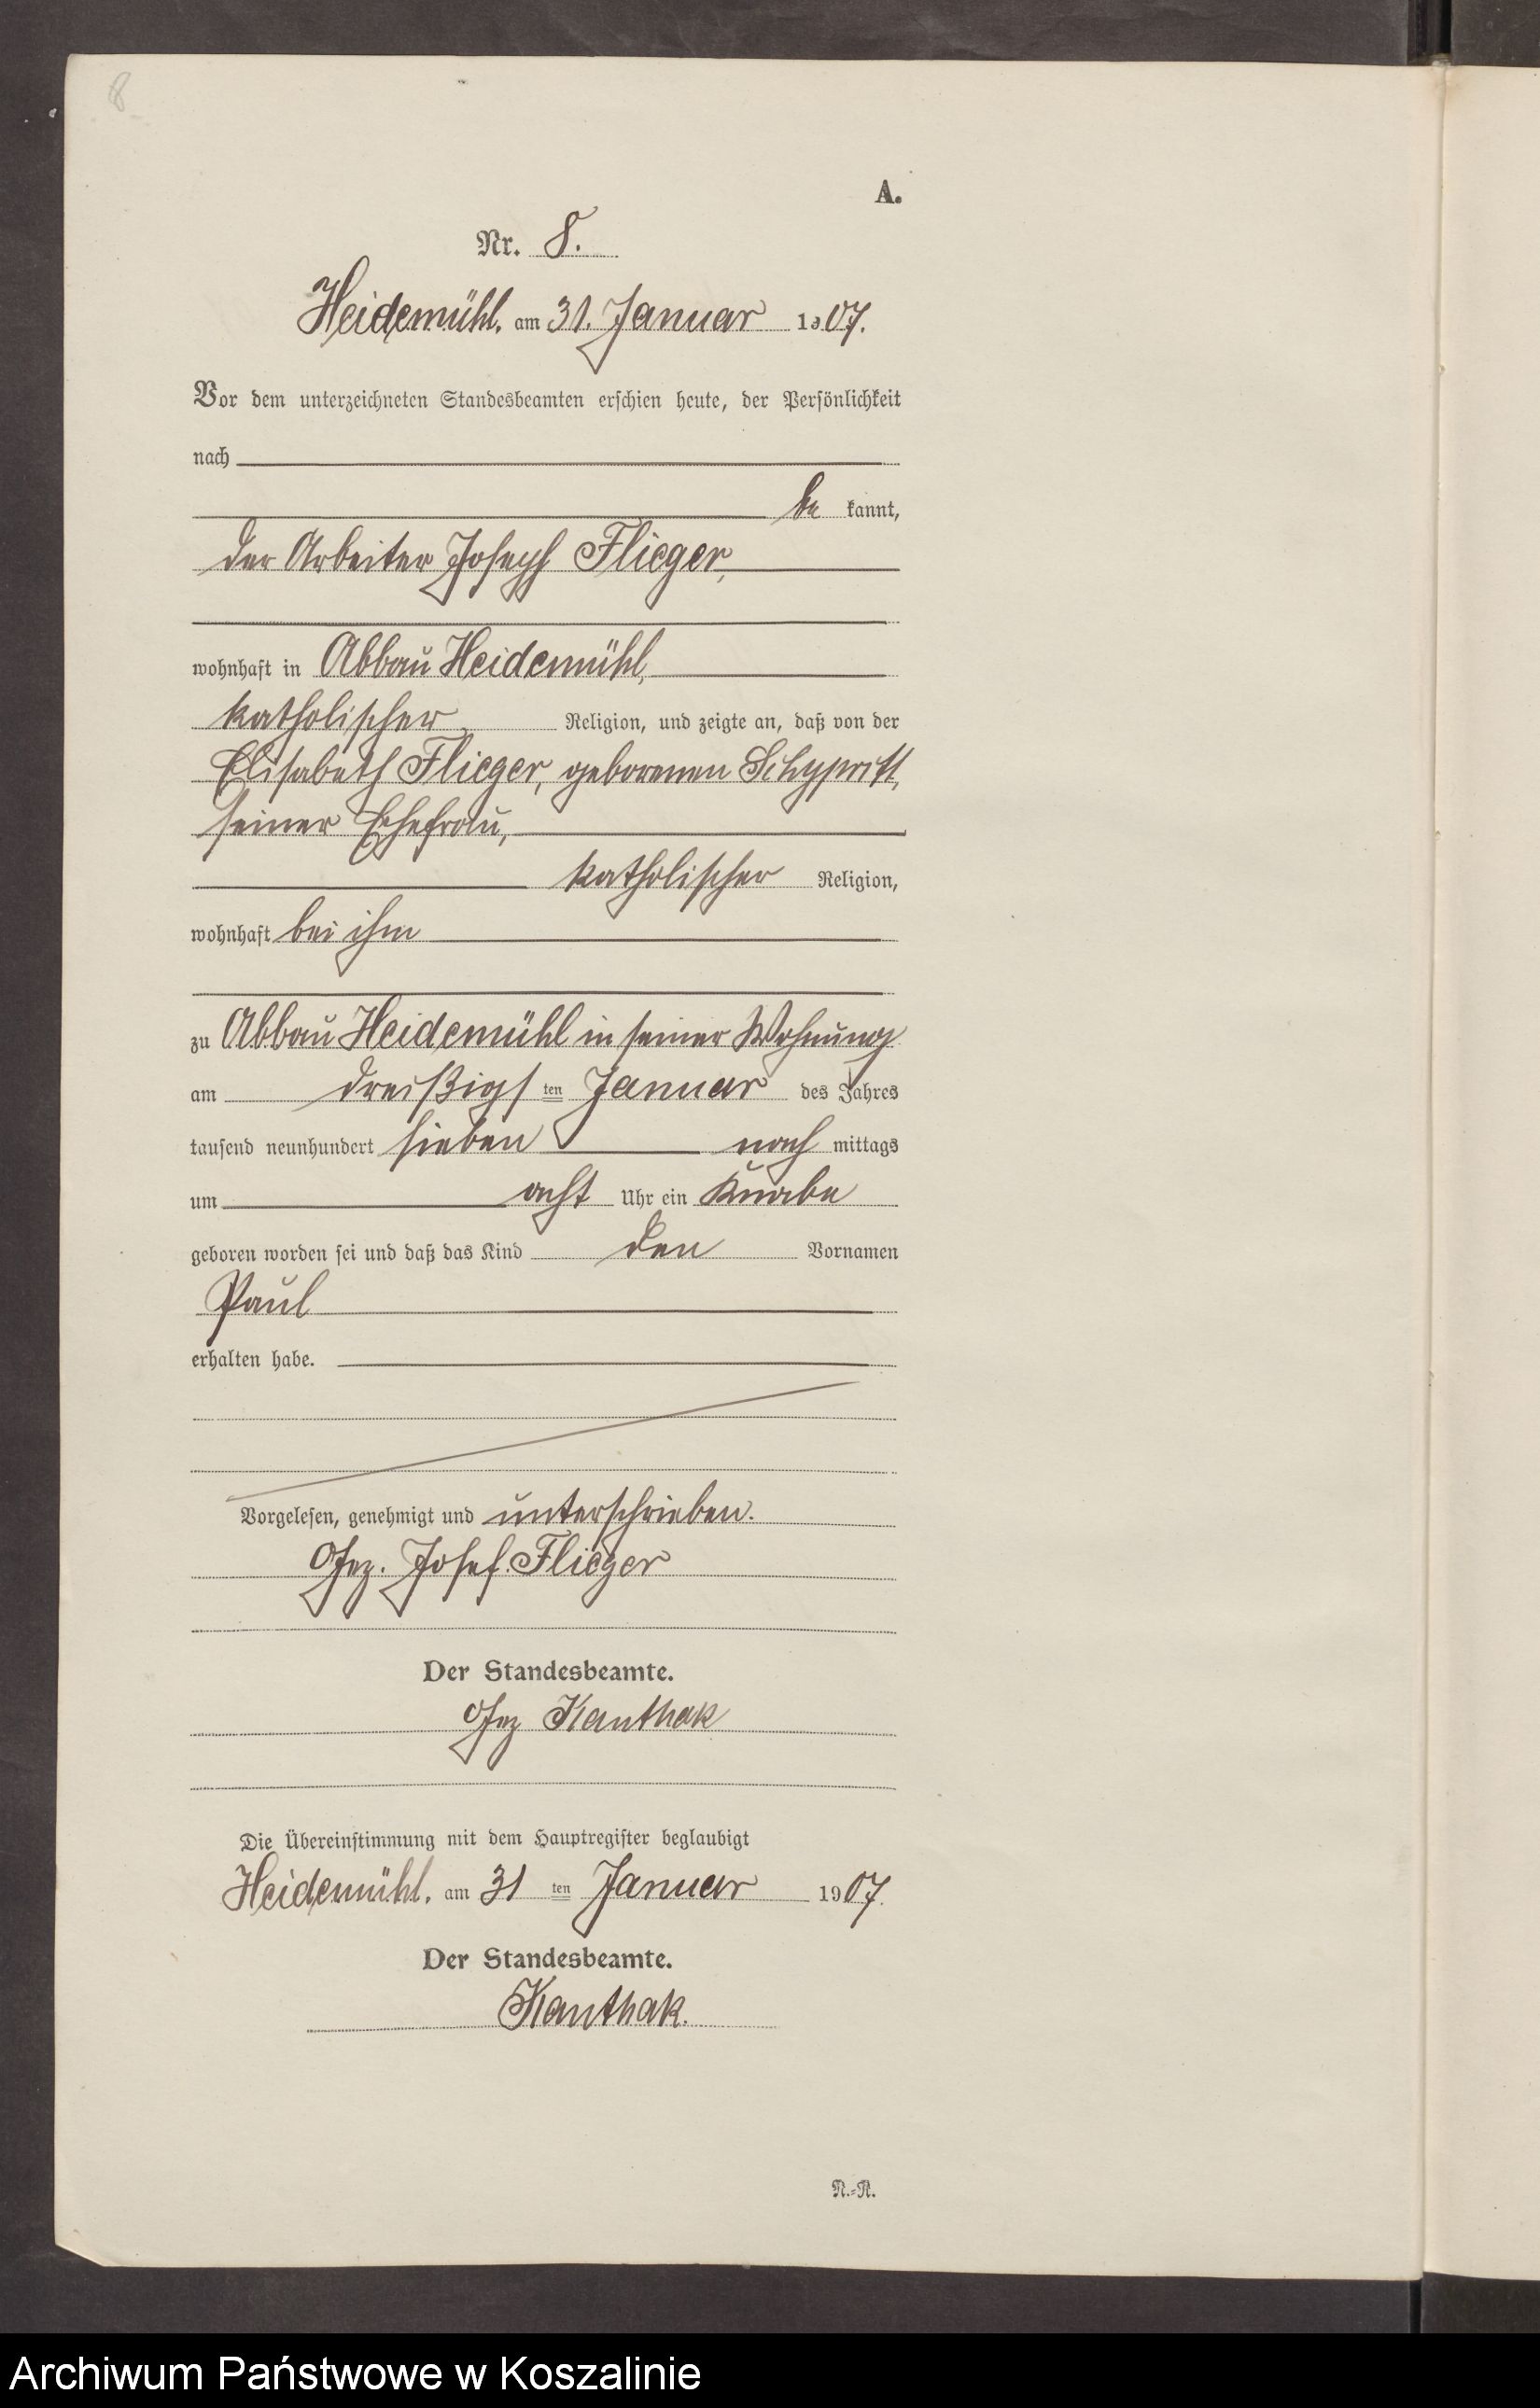 8
A.
Nr. 8.
Heidemühl, am 31. Januar 1907.
Vor dem unterzeichneten Standesbeamten erschien heute, der Persönlichkeit
nach
be kannt,
der Arbeiter Joseph Flieger,
wohnhaft in Abbau Heidemühl,
katholischer Religion, und zeigte an, daß von der
Elisabeth Flieger, geborenen
seiner Ehefrau,
katholischer Religion,
wohnhaft bei ihm
zu Abbau Heidemühl in seiner Wohnung
am dreißigs ten Januar des Jahres
tausend neunhundert sieben nach mittags
um acht Uhr ein Knabe
geboren worden sei und daß das Kind den Vornamen
Paul
erhalten habe.
Vorgelesen, genehmigt und unterschrieben.
Gez. Josef Flieger
Der Standesbeamte.
Gez Kanthak
Die Übereinstimmung mit dem Hauptregister beglaubigt
Heidemühl, am 31 ten Januar 1907.
Der Standesbeamte.
Kanthak.
N.-R.
Archiwum Państwowe w Koszalinie